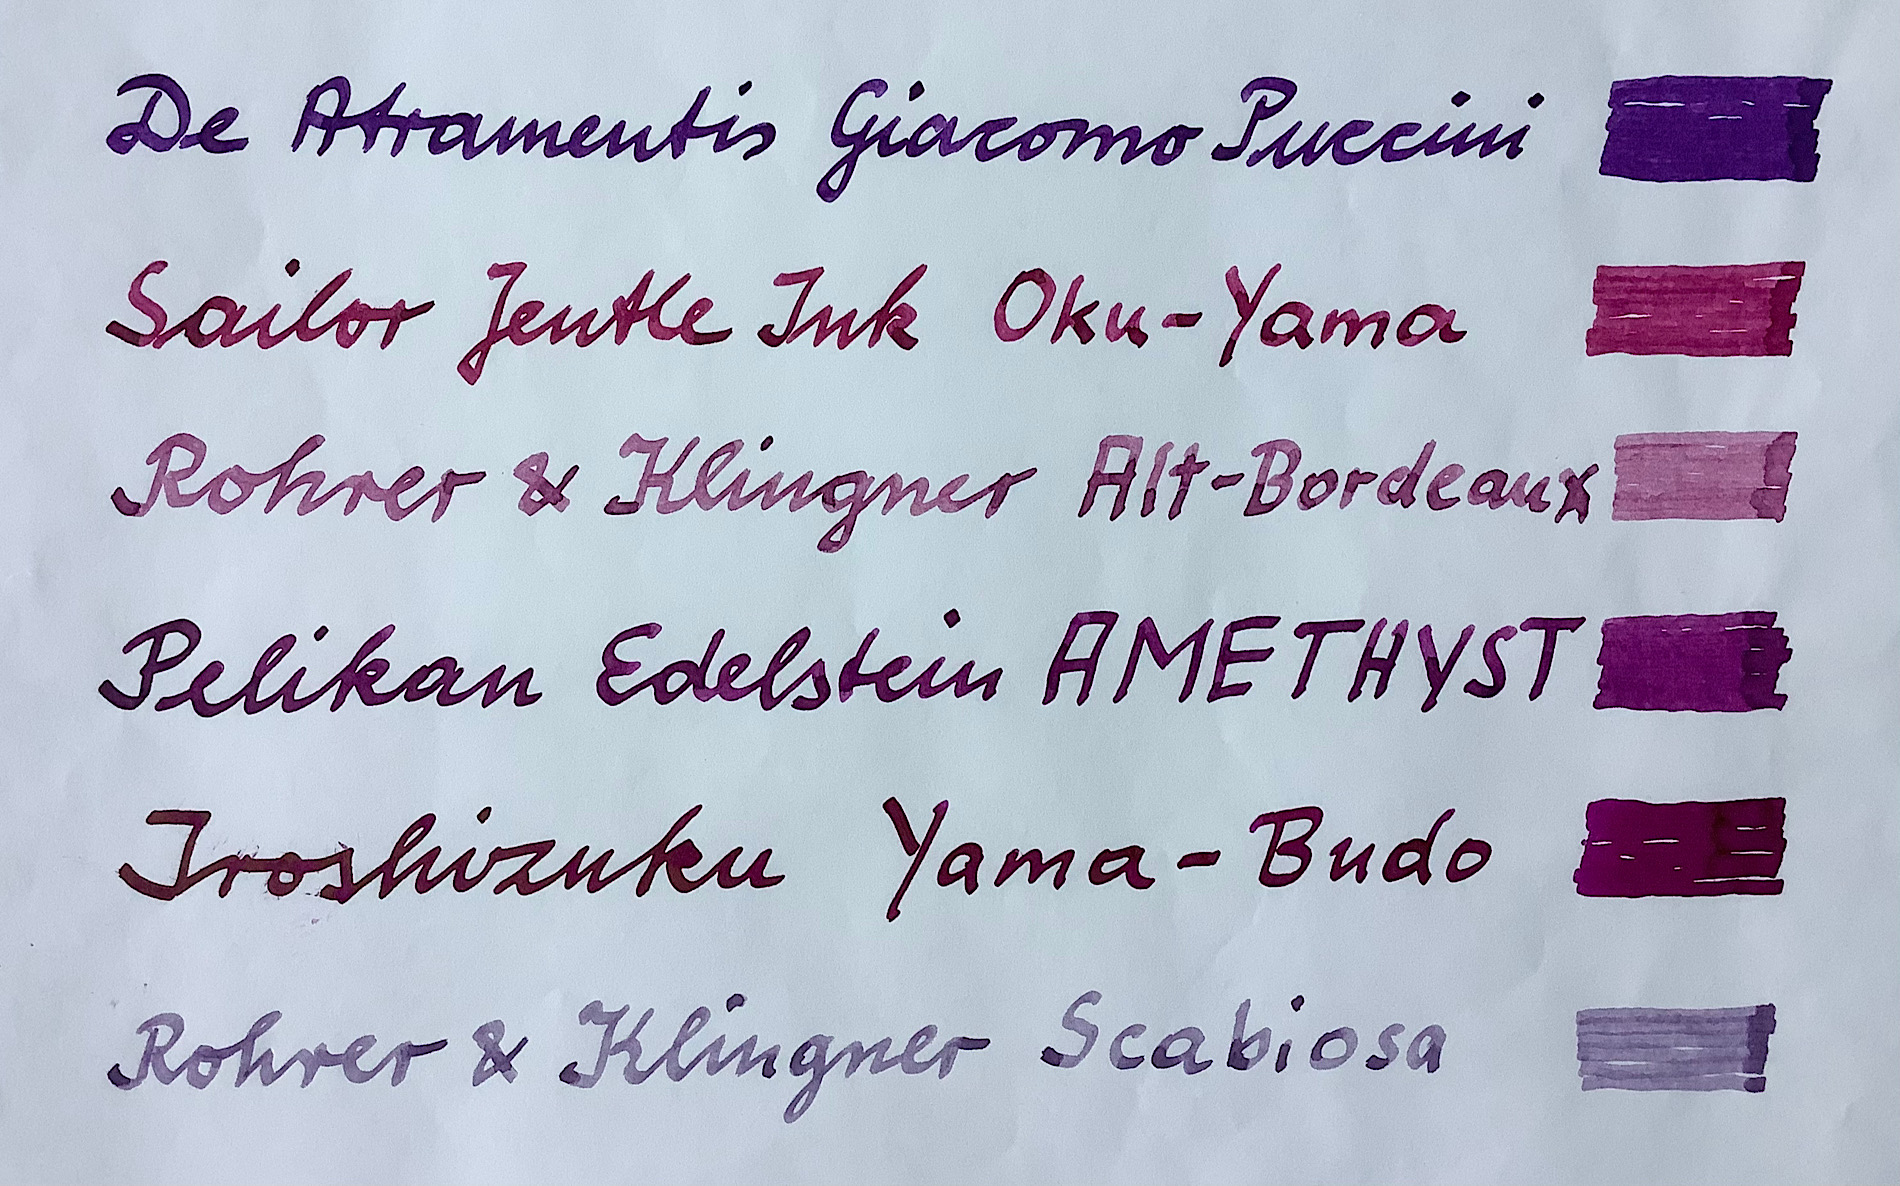 De Atramentis Giacomo Puccini
Sailor Jentle Ink Oku-Yama
Rohrer & Klingner Alt-Bordeaux
Pelikan Edelstein AMETHYST
Iroshizuku Yama-Budo
Rohrer & Klingner Scabiosa